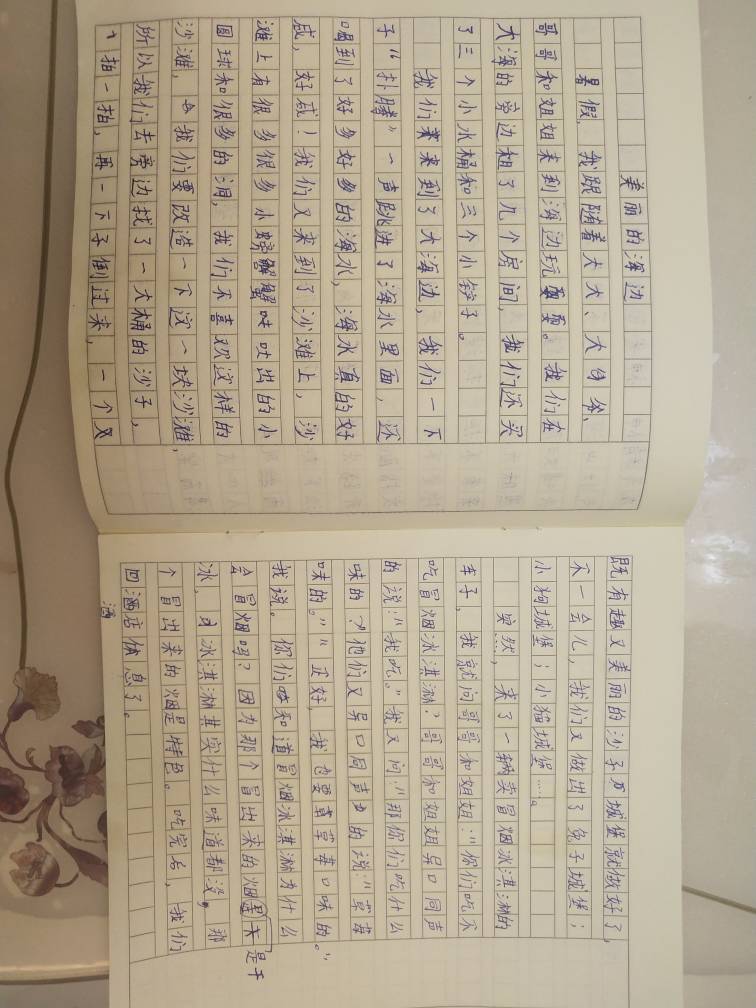 美丽的海边
暑假，我跟随着大大、大白爷、
哥哥和姐姐来到海边玩耍。我们在
大海的旁边租了几个房间，我们还买
了三个小水桶和三个小铲子。
我们来到了大海边，我们一下
子“扑腾”一声跳进了海水里面，还
喝到了好多好多的海水，海水真的好
咸，好咸！我们又来到了沙滩上，沙
滩上有很多很多小螃蟹吐出的小
圆球和很多的洞，我们不喜欢这样的
沙滩，我们要改造一下这一块沙滩，
所以我们去旁边找了一大桶的沙子，
拍一拍，再一下子倒过来，一个又
既有趣又美丽的沙子城堡就做好了，
不一会儿，我们又做出了兔子城堡；
小狗城堡；小猫城堡……。
突然，来了一辆卖冒烟冰淇淋的
车子，我就问哥哥和姐姐：“你们吃不
吃冒烟冰淇淋？哥哥和姐姐异口同声
的说：“我吃。”我又问：“那你们吃什么
味的？”他们又异口同声的说：“草莓
味的。”“正好，我也要草莓口味的。”
我说。你们知道冒烟冰淇淋为什么
会冒烟吗？因为那个冒出来的烟是干
冰，冰淇淋其实什么味道都没，那
个冒出来的烟是特色。吃完后，我们
回酒店休息了。